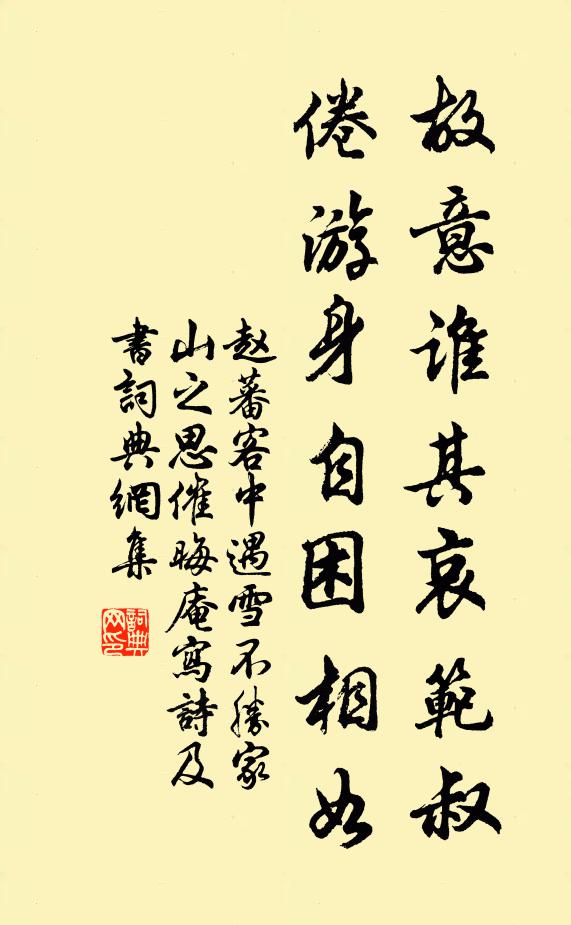 故意誰其哀範叔
倦游身自困相如
赵蕃客中遇雪不勝家
山之思催晦庵寫詩及
書詞典網集
詞典
网印